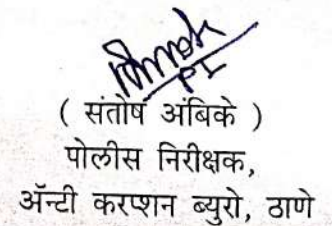 PI
( संतोष अंबिके )
पोलीस निरीक्षक,
ॲन्टी करप्शन ब्युरो, ठाणे